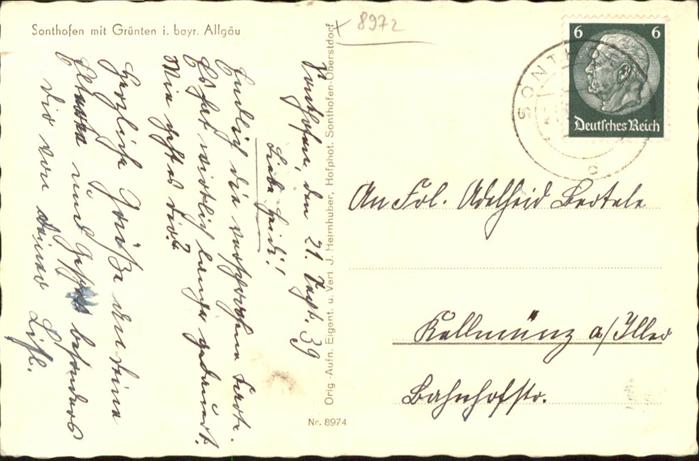 Sonthofen mit Grünten i. bayr. Allgäu
+ 8972
6 6
Deutsches Reich
SONTH
c
Sonthofen, den 21. Sept. 39
Liebe Heidi!
Endlich die versprochene Karte.
Es hat wirklich lange gedauert.
Wie geht es Dir?
Herzliche Grüße an Deine
Eltern und besonders
Dir von Deiner
Orig.-Aufn. Eigent. u. Verl. J. Heimhuber, Hofphot. Sonthofen-Oberstdorf
Nr. 8974
An Frl. Adelheid Bertele
Kellmünz a/Iller
Bahnhofstr.